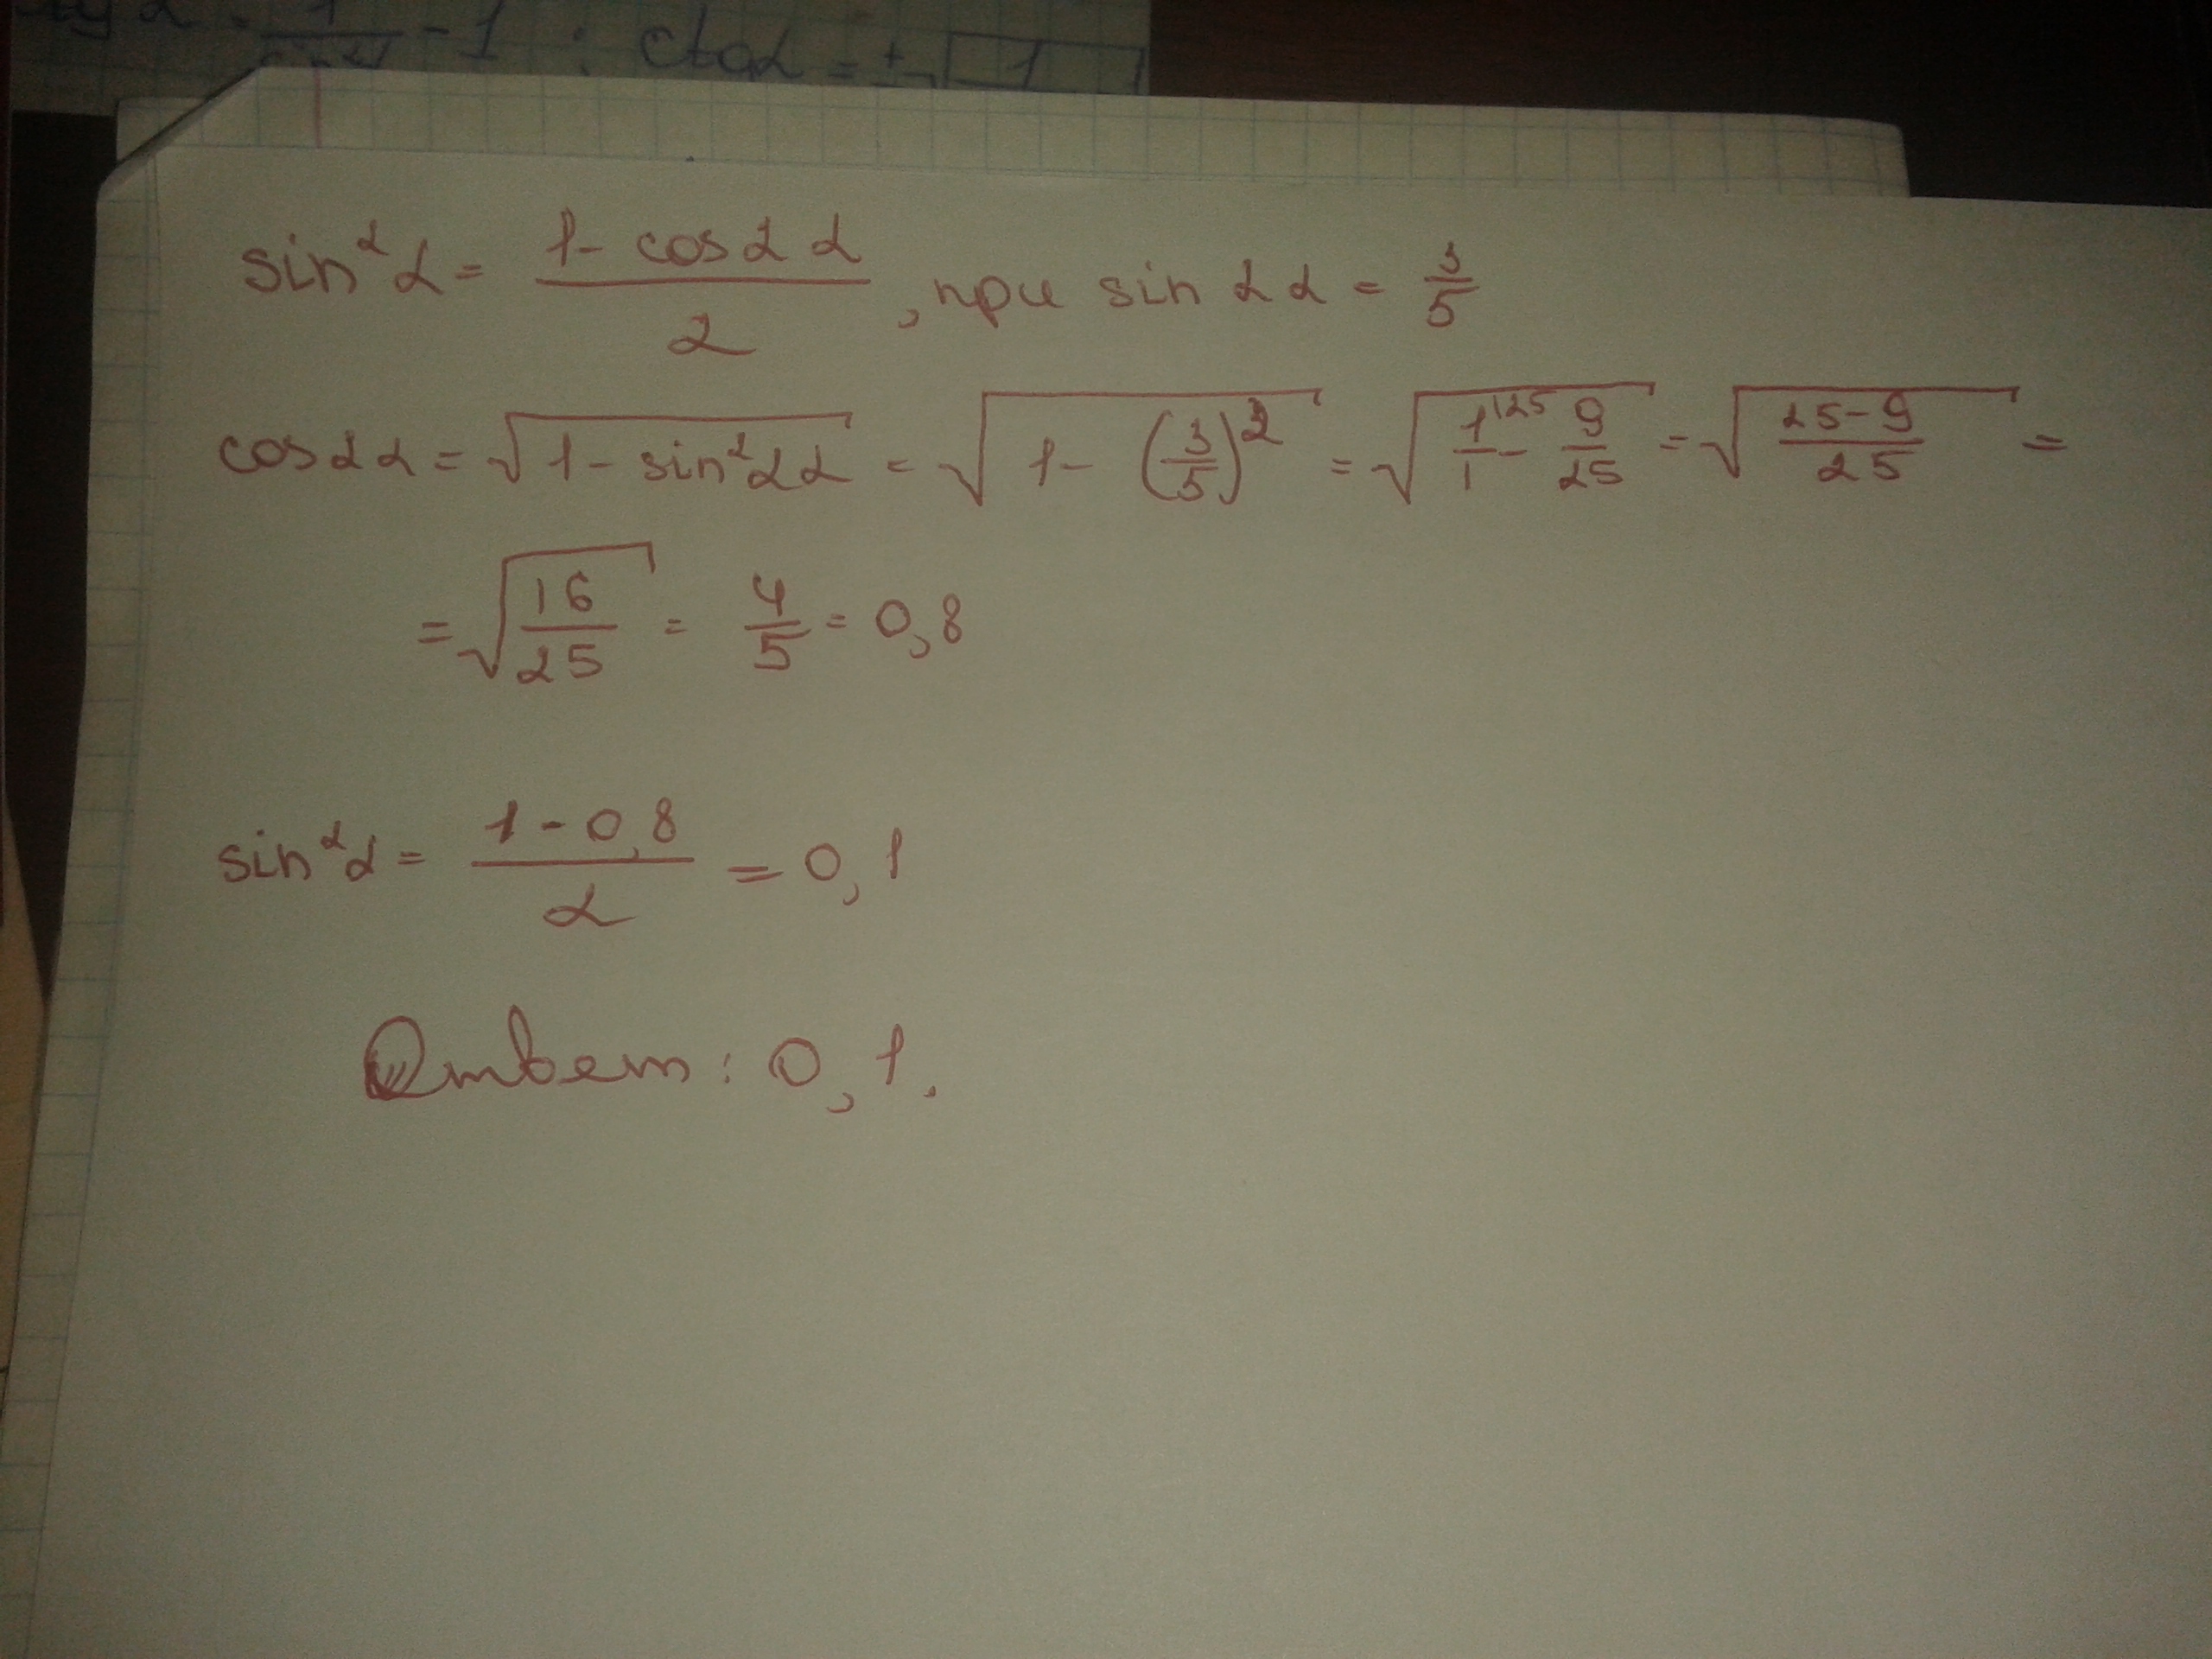 -1 ; ctgα = ± √1
sin²α = (1 - cos2α)/2, при sin 2α = 3/5
cos2α = √(1 - sin²2α) = √(1 - (3/5)²) = √(1/1^(25 - 9/25) = √((25-9)/25) =
= √(16/25) = 4/5 = 0,8
sin²α = (1 - 0,8)/2 = 0,1
Ответ: 0,1.